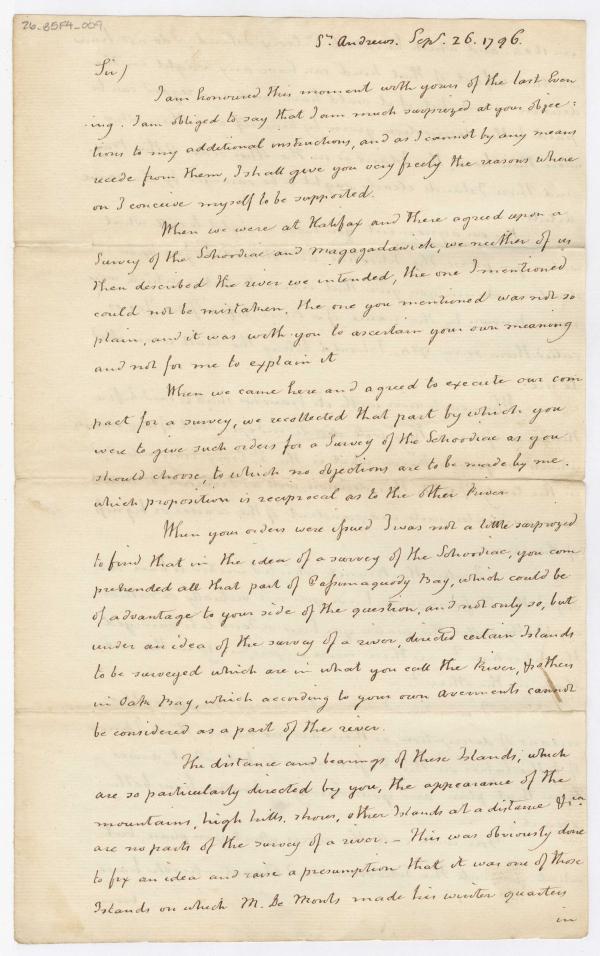 26-85F4-009
Sr. Andrews. Sepr. 26. 1796.
Sir)
I am honoured this moment with yours of the last Even
ing. I am obliged to say that I am much surprozed at your objec-
tions to my additional instructions, and as I cannot by any means
recede from them, I shall give you very freely the reasons where
on I conceive myself to be supported.
When we were at Halifax and there agreed upon a
Survey of the Schoodiac and Magagadawick, we neither of us
then described the river we intended, the one I mentioned
could not be mistaken, the one you mentioned was not so
plain, and it was with you to ascertain your own meaning
and not for me to explain it
When we came here and agreed to execute our com
pact for a survey, we recollected that part by which you
were to give such orders for a Survey of the Schoodiac as you
should choose, to which no objections are to be made by me.
which proposition is reciprocal as to the other River
When your orders were issued I was not a little surprozed
to find that in the idea of a survey of the Schoodiac, you com
prehended all that part of Passimaquody Bay, which could be
of advantage to your side of the question, and not only so, but
under an idea of the survey of a river, directed certain Islands
to be surveyed which are in what you call the River, & others
in Oak Bay, which according to your own averments cannot
be considered as a part of the river.
The distance and bearings of these Islands, which
are so particularly directed by you, the appearance of the
mountains, high hills, shores, other Islands at a distance &ca
are no parts of the survey of a river. – This was obviously done
to fix an idea and raise a presumption that it was one of those
Islands on which M. De Monts made his winter quarters
in